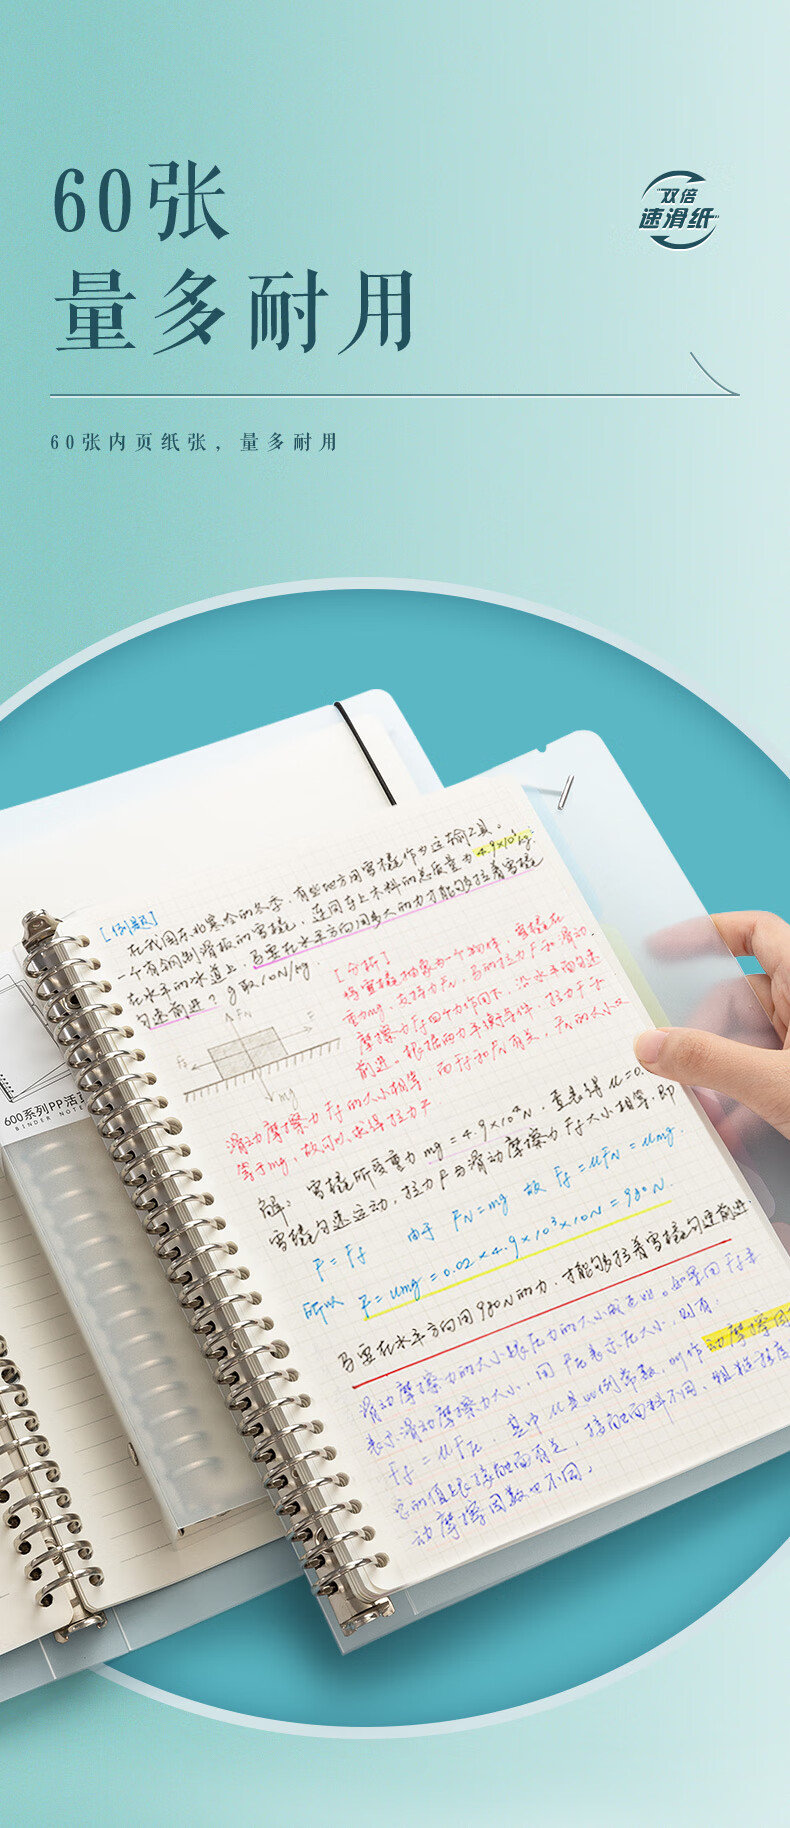 60张
量多耐用
"双倍
速滑纸"
60张内页纸张，量多耐用
[例题]
在我国东北寒冷的冬季，有些地方用雪橇作为运输工具。
一个有钢制滑板的雪橇，连同车上木料的总质量为4.9×10⁴kg.
在水平的冰道上，马要在水平方向用多大的力才能够拉着雪橇
匀速前进？g取10N/kg.
FN
F
Ff
mg
[分析]
将雪橇抽象为一个物体，雪橇在
重力mg，支持力FN，马的拉力F和滑动
摩擦力Ff四个力作用下，沿水平面匀速
前进。根据四力平衡条件，拉力F与
滑动摩擦力Ff的大小相等，而Ff和FN有关，FN的大小又
等于mg，故可以求得拉力F
解：雪橇所受重力mg=4.9×10⁴N，查表得μ=0.
雪橇匀速运动，拉力F与滑动摩擦力Ff大小相等，即
F=Ff 由于 FN=mg 故 Ff=μFN=μmg.
所以 F=μmg=0.02×4.9×10³×10N=980N.
马要在水平方向用980N的力，才能够拉着雪橇匀速前进.
滑动摩擦力的大小跟压力的大小成正比。如果用Ff来
表示滑动摩擦力大小，用F压表示压大小，则有
Ff=μF压，其中μ是比例常数，叫作动摩擦因
它的值跟接触面有关，接触面材料不同、粗糙程度
动摩擦因数也不同。
600系列PP活页
BINDER NOTE